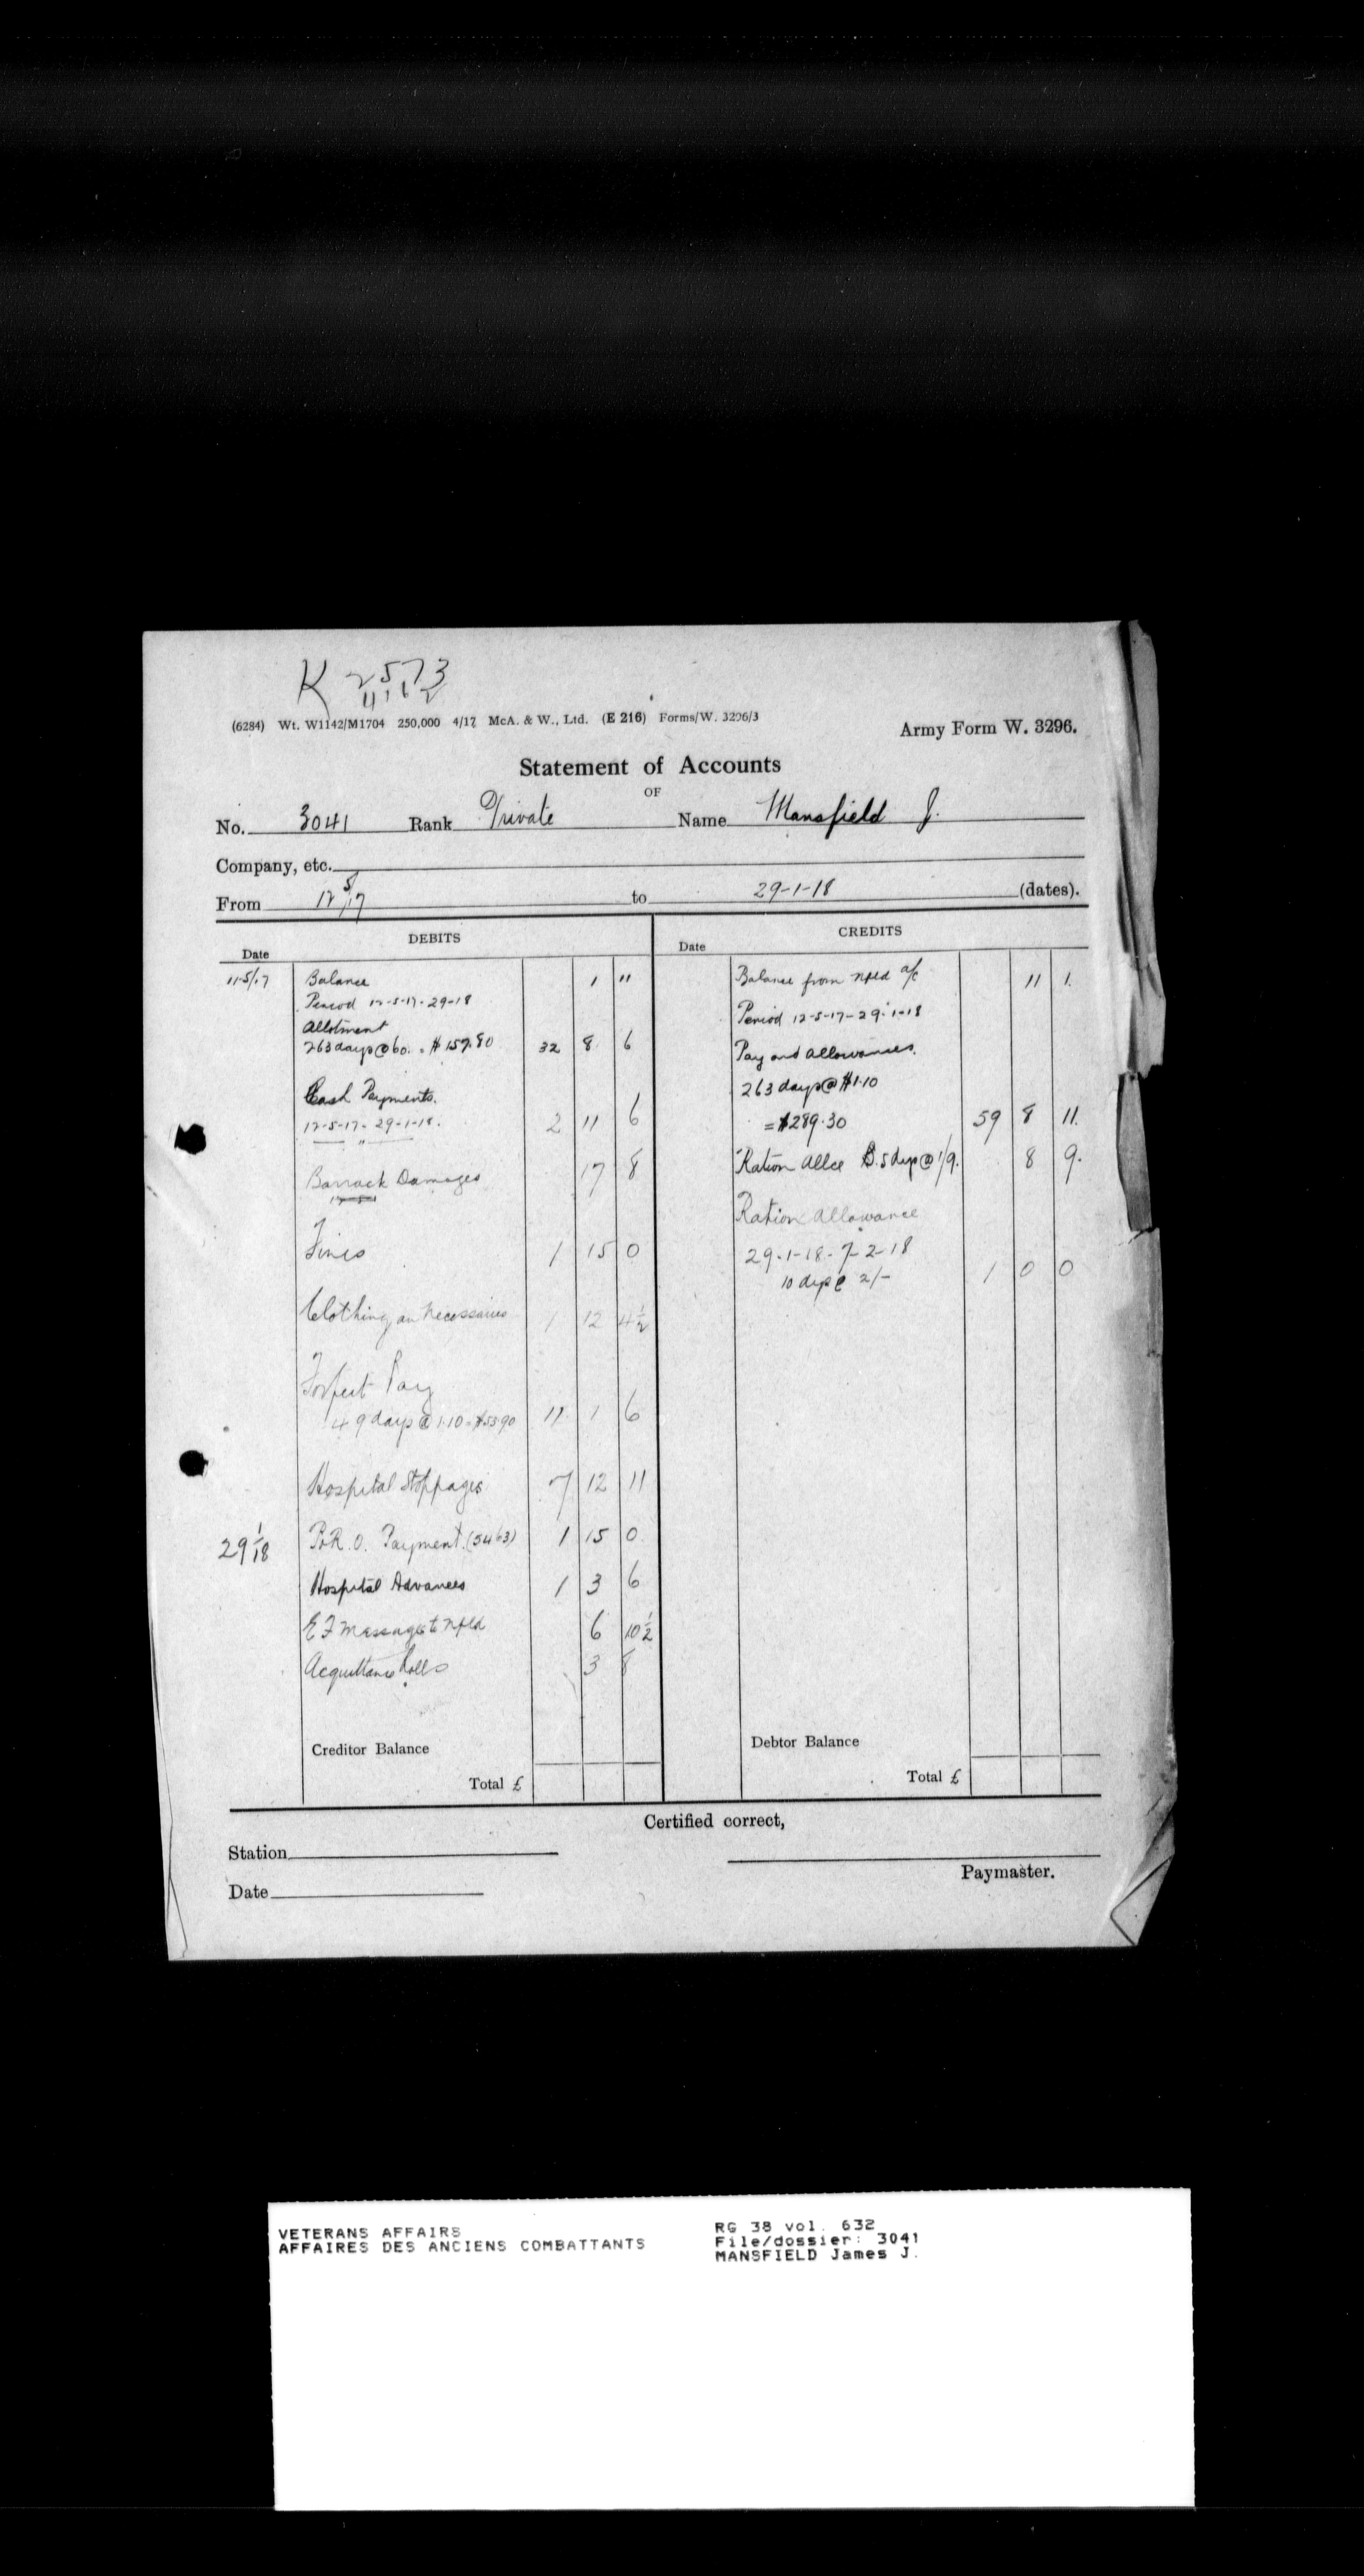 K 2573
(6284) Wt. W1142/M1704 250,000 4/17 McA. & W., Ltd. (E 216) Forms/W. 3296/3
Army Form W. 3296.
Statement of Accounts
OF
No. 3041 Rank Private Name Mansfield J.
Company, etc.
From 12/5/17 to 29-1-18 (dates).
DEBITS
Date
11-5/17 Balance 1 11
Period 12-5-17-29-18
Allotment
263 days @ 60. = $157.80 32 8 6
Cash Payments.
12-5-17- 29-1-18. 2 11 6
Barrack Damages 17 8
Fines 1 15 0
Clothing an Necessaries 1 12 4½
Forfeit Pay
49 days @ 1.10 = $53.90 11 1 6
Hospital Stoppages 7 12 11
29 1/18 P.R.O. Payment. (5463) 1 15 0
Hospital Advances 1 3 6
E F Messages to Nfld 6 10½
Acquittance Rolls 3 8
Creditor Balance
Total £
CREDITS
Date
Balance from Nfld a/c 11 1.
Period 12-5-17-29-1-18
Pay and Allowances.
263 days @ $1.10
= $289.30 59 8 11.
Ration Allce 5 days @ 1/9. 8 9.
Ration Allowance
29-1-18-7-2-18
10 days @ 2/- 1 0 0
Debtor Balance
Total £
Certified correct,
Station
Paymaster.
Date
VETERANS AFFAIRS
AFFAIRES DES ANCIENS COMBATTANTS
RG 38 vol. 632
File/dossier: 3041
MANSFIELD James J.